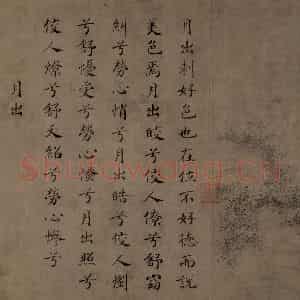 月出刺好色也在位不好德而說
美色焉月出皎兮佼人僚兮舒窈
糾兮勞心悄兮月出皓兮佼人懰
兮舒懮受兮勞心慅兮月出照兮
佼人燎兮舒夭紹兮勞心慘兮
月出
Shufawang.cn